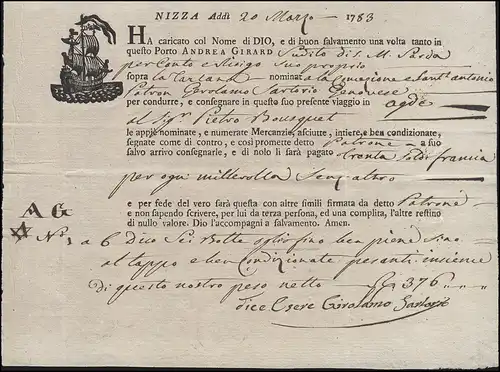 NIZZA Addì 20 Marzo 1783
HA caricato col Nome di DIO, e di buon salvamento una volta tanto in
questo Porto ANDREA GIRARD Sudito di S. M. Sarda
per Conto e Risigo Suo proprio
sopra la Tartana nominata la Concezione e Sant' Antonio
Patron Girolamo Sartorio Genovese
per condurre, e consegnare in questo suo presente viaggio in agde
al Sigr Pietro Bousquet
le appiè nominate, e numerate Mercanzie, asciutte, intiere, e ben condizionate,
segnate come di contro, e così promette detto Patrone a suo
salvo arrivo consegnarle, e di nolo li sarà pagato trenta soldi francia
per ogni millerolla Senz'altro
e per fede del vero sarà questa con altre simili firmata da detto Patrone
e non sapendo scrivere, per lui da terza persona, ed una complita, l'altre restino
di nullo valore. Dio l'accompagni a salvamento. Amen.
A G
N° 1 a 6 dico Sei Botte oglio fino ben piene Sino
al tappo e ben Condizionate pesanti insieme
di questo nostro peso netto 376
dice Esere Girolamo Sartorio